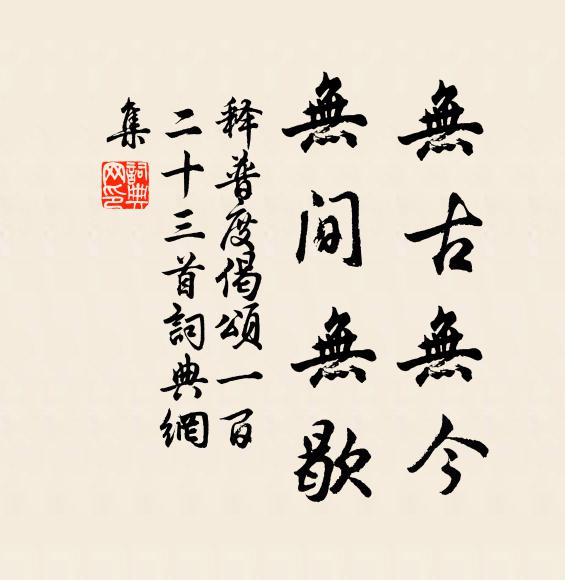 無古無今
無间無歇
释普度偈頌一百
二十三首詞典網
集
詞典
网印